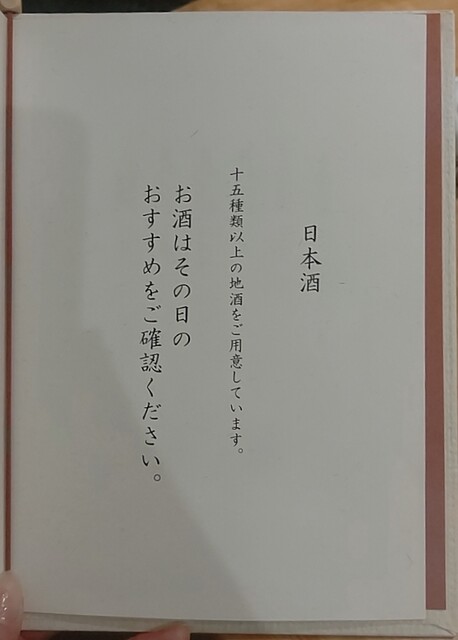 日本酒
十五種類以上の地酒をご用意しています。
お酒はその日の
おすすめをご確認ください。